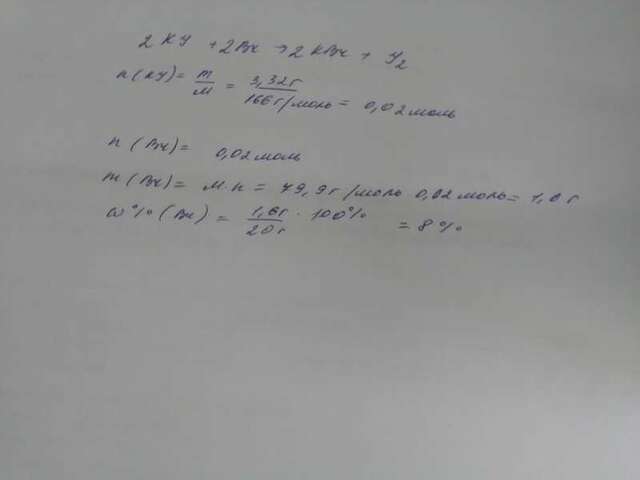 2 KY + 2Br → 2 KBr + Y₂
n(KY) = m/M = 3,32г/166г/моль = 0,02 моль
n (Br) = 0,02 моль
m (Br) = M·n = 79,9г/моль · 0,02 моль = 1,6 г
ω% (Br) = 1,6г/20г · 100% = 8%